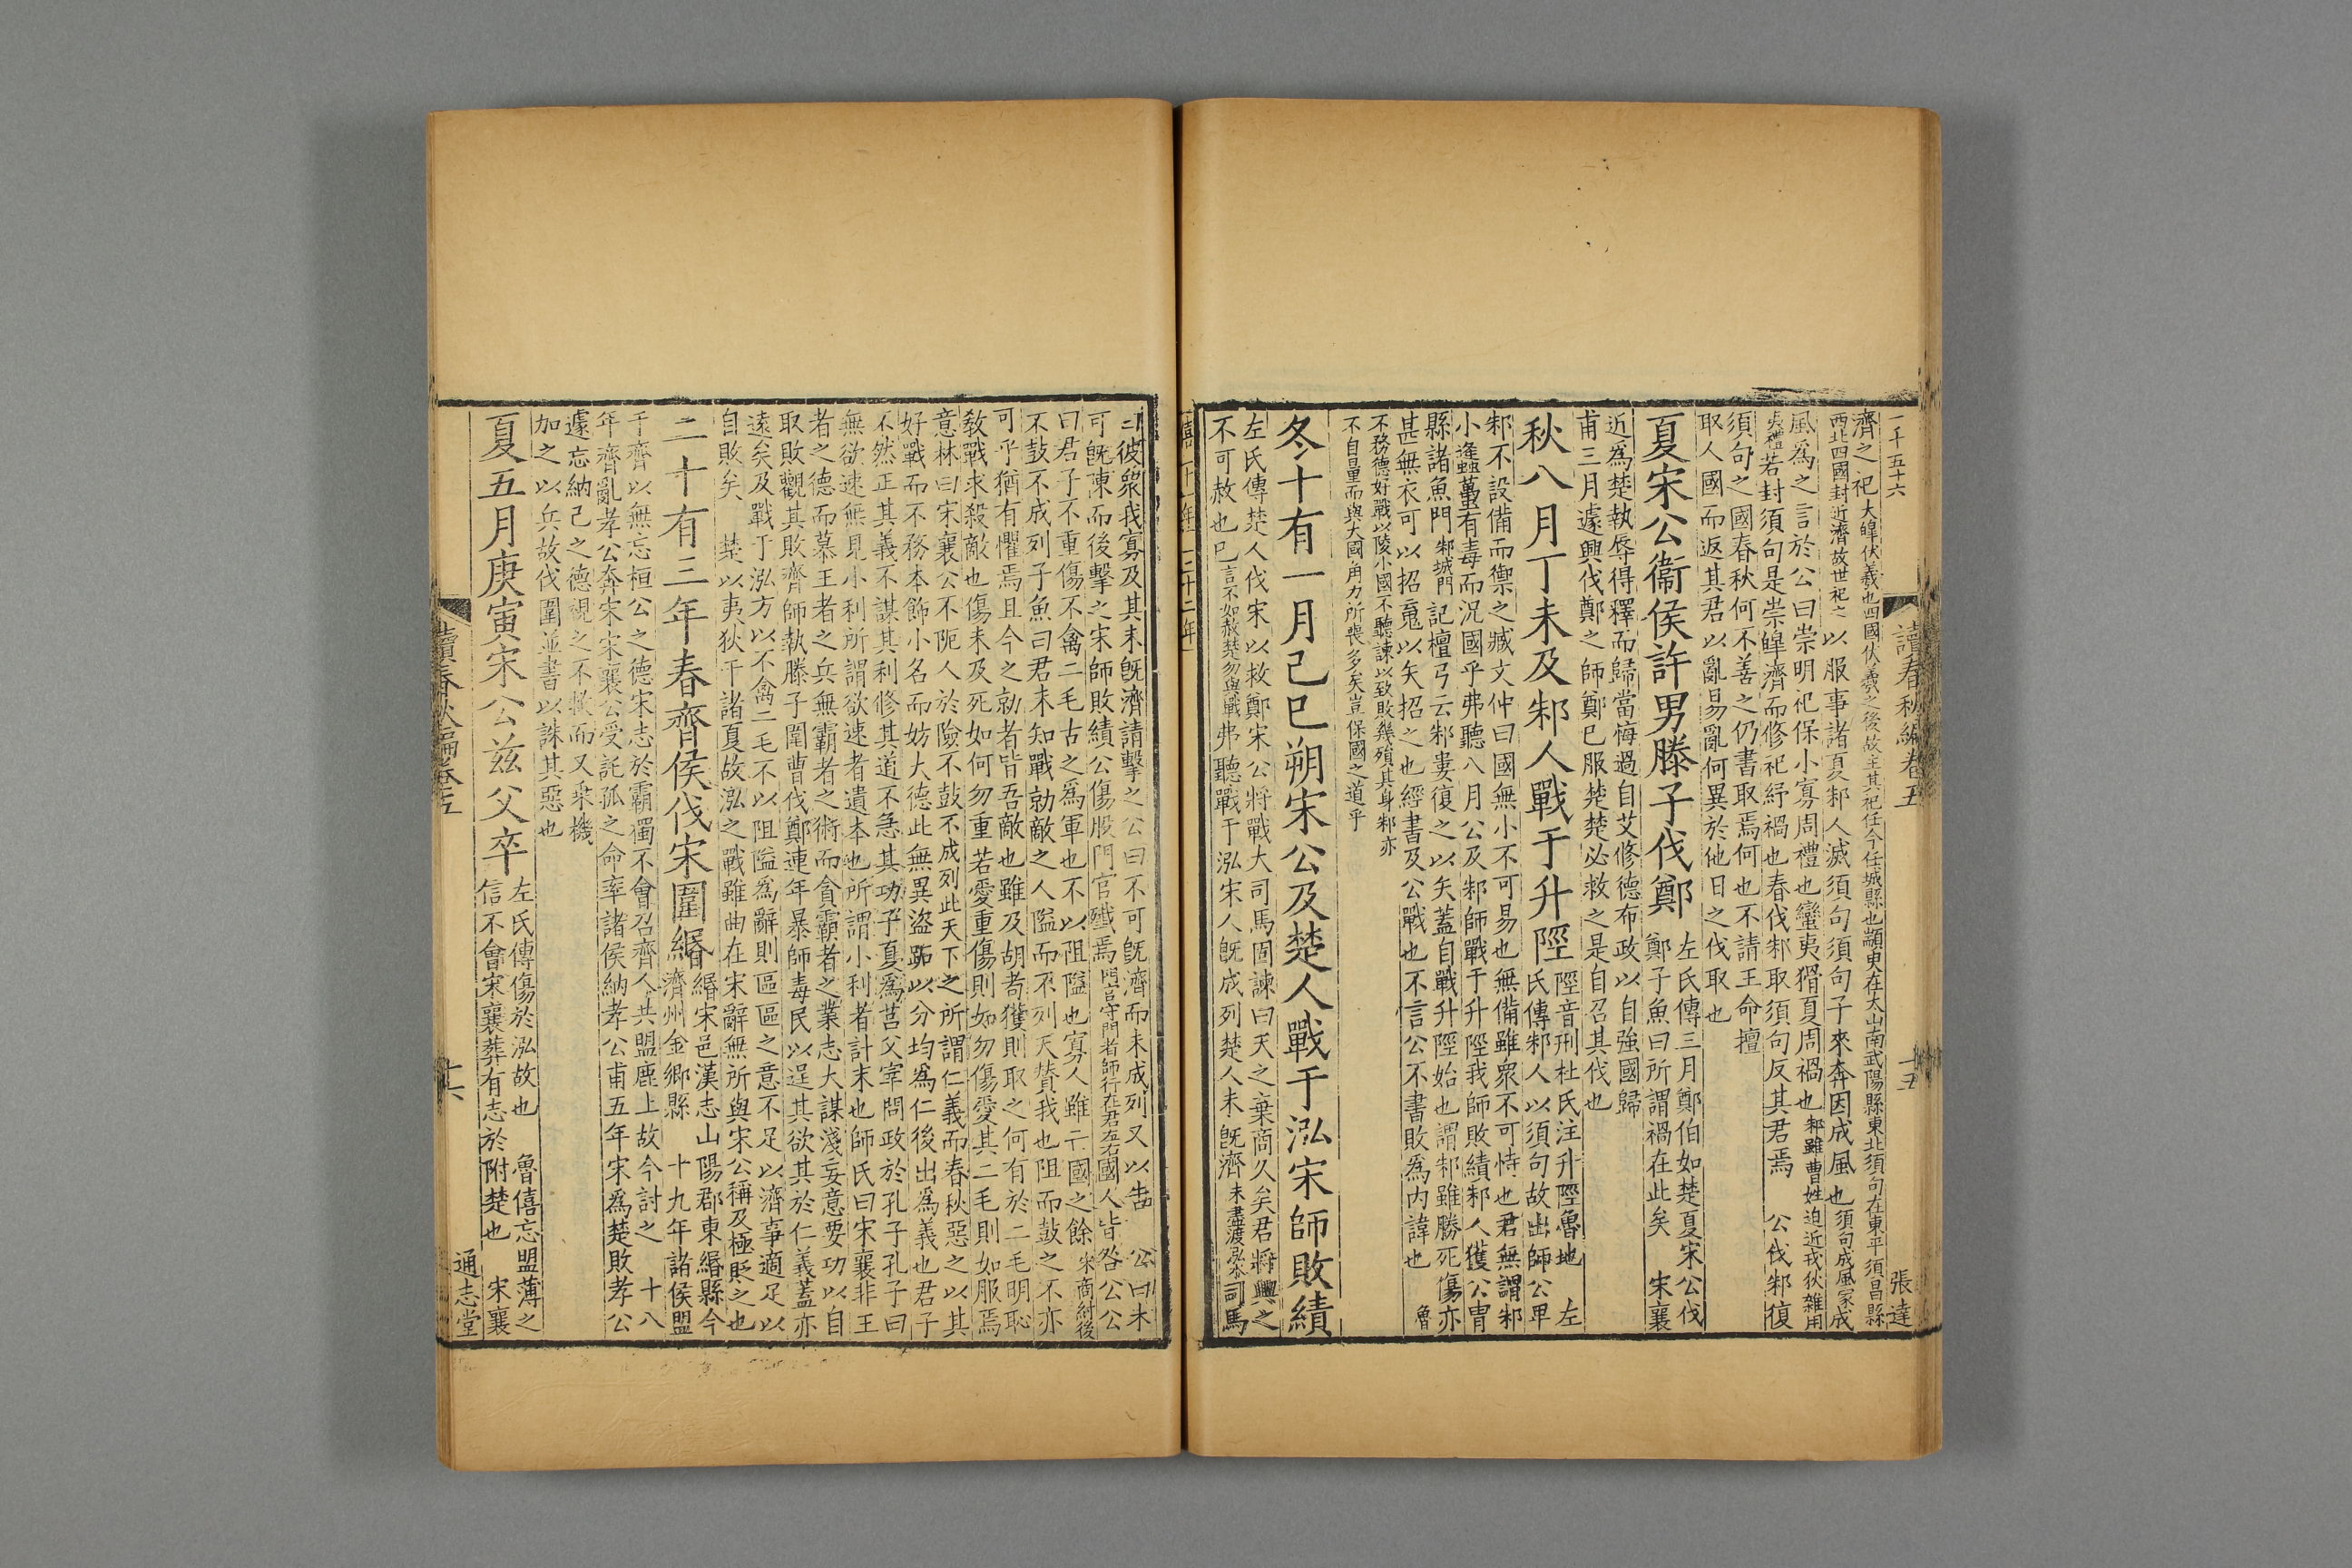 一千五十六
讀春秋編卷五
十五
張達
濟之祀大皥伏羲也四國伏羲之後故主其祀任今任城縣也顓臾在太山南武陽縣東北須句在東平須昌縣
西北四國封近濟故世祀之以服事諸夏邾人滅須句須句子來奔因成風也須句成風家成
風為之言於公曰崇明祀保小寡周禮也蠻夷猾夏周禍也邾雖曹姓迫近戎狄雜用
夷禮若封須句是崇皥濟而修祀紓禍也春伐邾取須句反其君焉 公伐邾復
須句之國春秋何不善之仍書取焉何也不請王命擅
取人國而返其君以亂易亂何異於他日之伐取也
夏宋公衞侯許男滕子伐鄭
左氏傳三月鄭伯如楚夏宋公伐
鄭子魚曰所謂禍在此矣 宋襄
近為楚執辱得釋而歸當悔過自艾修德布政以自強國歸
甫三月遽興伐鄭之師鄭已服楚楚必救之是自召其伐也
秋八月丁未及邾人戰于升陘
陘音刑杜氏注升陘魯地 左
氏傳邾人以須句故出師公卑
邾不設備而禦之臧文仲曰國無小不可易也無備雖衆不可恃也君無謂邾
小蠭蠆有毒而況國乎弗聽八月公及邾師戰于升陘我師敗績邾人獲公胄
縣諸魚門邾城門記檀弓云邾婁復之以矢蓋自戰升陘始也謂邾雖勝死傷亦
甚無衣可以招䰟以矢招之也經書及公戰也不言公不書敗為内諱也 魯
不務德好戰以陵小國不聽諫以致敗幾殞其身邾亦
不自量而與大國角力所喪多矣豈保國之道乎
冬十有一月己巳朔宋公及楚人戰于泓宋師敗績
左氏傳楚人伐宋以救鄭宋公將戰大司馬固諫曰天之棄商久矣君將興之
不可赦也已言不如赦楚勿與戰弗聽戰于泓宋人旣成列楚人未旣濟未盡渡泓水司馬
曰彼衆我寡及其未旣濟請擊之公曰不可旣濟而未成列又以告 公曰未
可旣陳而後擊之宋師敗績公傷股門官殲焉門官守門者師行在君左右國人皆咎公公
曰君子不重傷不禽二毛古之為軍也不以阻隘也寡人雖亡國之餘宋商紂後
不鼓不成列子魚曰君未知戰勍敵之人隘而不列天贊我也阻而鼓之不亦
可乎猶有懼焉且今之勍者皆吾敵也雖及胡耇獲則取之何有於二毛明恥
敎戰求殺敵也傷未及死如何勿重若愛重傷則如勿傷愛其二毛則如服焉
意林曰宋襄公不阨人於險不鼓不成列此天下之所謂仁義而春秋惡之以其
好戰而不務本飾小名而妨大德此無異盜跖以分均為仁後出為義也君子
不然正其義不謀其利修其道不急其功子夏為莒父宰問政於孔子孔子曰
無欲速無見小利所謂欲速者遺本也所謂小利者計末也師氏曰宋襄非王
者之德而慕王者之兵無霸者之術而貪霸者之業志大謀淺妄意要功以自
取敗觀其敗齊師執滕子圍曹伐鄭連年暴師毒民以逞其欲其於仁義蓋亦
遠矣及戰于泓方以不禽二毛不以阻隘為辭則區區之意不足以濟事適足以
自敗矣 楚以夷狄干諸夏故泓之戰雖曲在宋辭無所與宋公稱及極貶之也
二十有三年春齊侯伐宋圍緡
緡宋邑漢志山陽郡東緡縣今
濟州金鄉縣 十九年諸侯盟
于齊以無忘桓公之德宋志於霸獨不會召齊人共盟鹿上故今討之 十八
年齊亂孝公奔宋宋襄公受託孤之命率諸侯納孝公甫五年宋為楚敗孝公
遽忘納己之德視之不救而又乘機
加之以兵故伐圍並書以誅其惡也
夏五月庚寅宋公茲父卒
左氏傳傷於泓故也 魯僖忘盟薄之
信不會宋襄葬有志於附楚也 宋襄
讀春秋編卷五
十六
通志堂